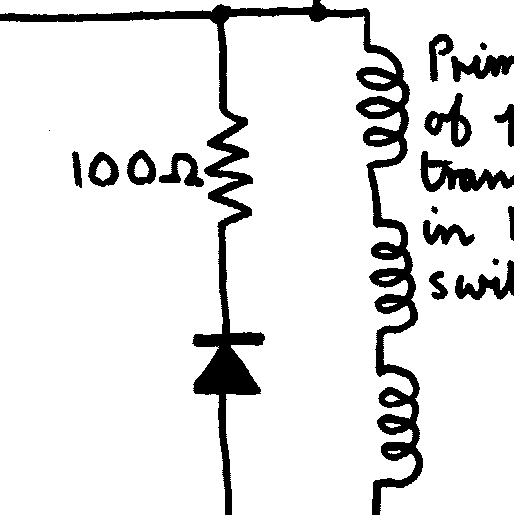 100Ω
Prim
of
tran
in
swi